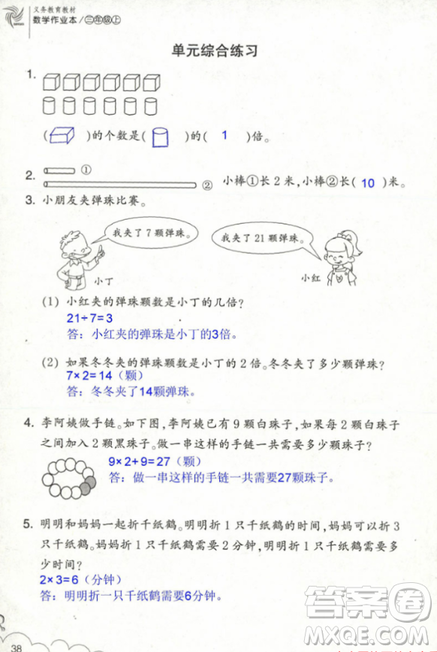 义务教育教材
数学作业本/三年级上
单元综合练习
1.
( )的个数是( )的( 1 )倍。
2. ①
②
小棒①长2米,小棒②长( 10 )米。
3. 小朋友夹弹珠比赛。
我夹了7颗弹珠。
我夹了21颗弹珠。
小丁
小红
(1) 小红夹的弹珠颗数是小丁的几倍?
21÷7=3
答:小红夹的弹珠是小丁的3倍。
(2) 如果冬冬夹的弹珠颗数是小丁的2倍。冬冬夹了多少颗弹珠?
7×2=14(颗)
答:冬冬夹了14颗弹珠。
4. 李阿姨做手链。如下图,李阿姨已有9颗白珠子,如果每两颗白珠子
之间加入2颗黑珠子。做一串这样的手链一共需要多少颗珠子?
9×2+9=27(颗)
答:做一串这样的手链一共需要27颗珠子。
5. 明明和妈妈一起折千纸鹤。明明折1只千纸鹤的时间,妈妈可以折3
只千纸鹤。妈妈折1只千纸鹤需要2分钟,明明折1只千纸鹤需要
多少时间?
2×3=6(分钟)
答:明明折1只千纸鹤需要6分钟。
38
答案圈